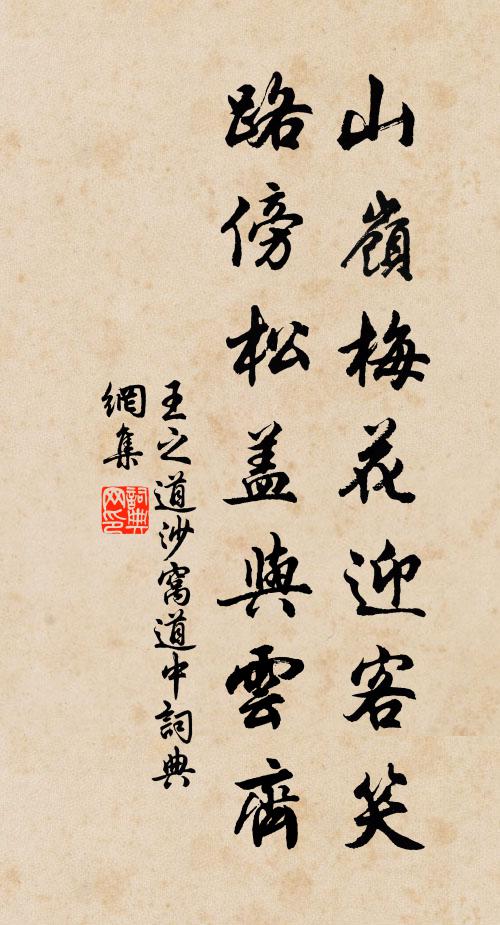 山嶺梅花迎客笑
路傍松蓋與雲齊
王之道沙窩道中詞典
網集
詞典網印